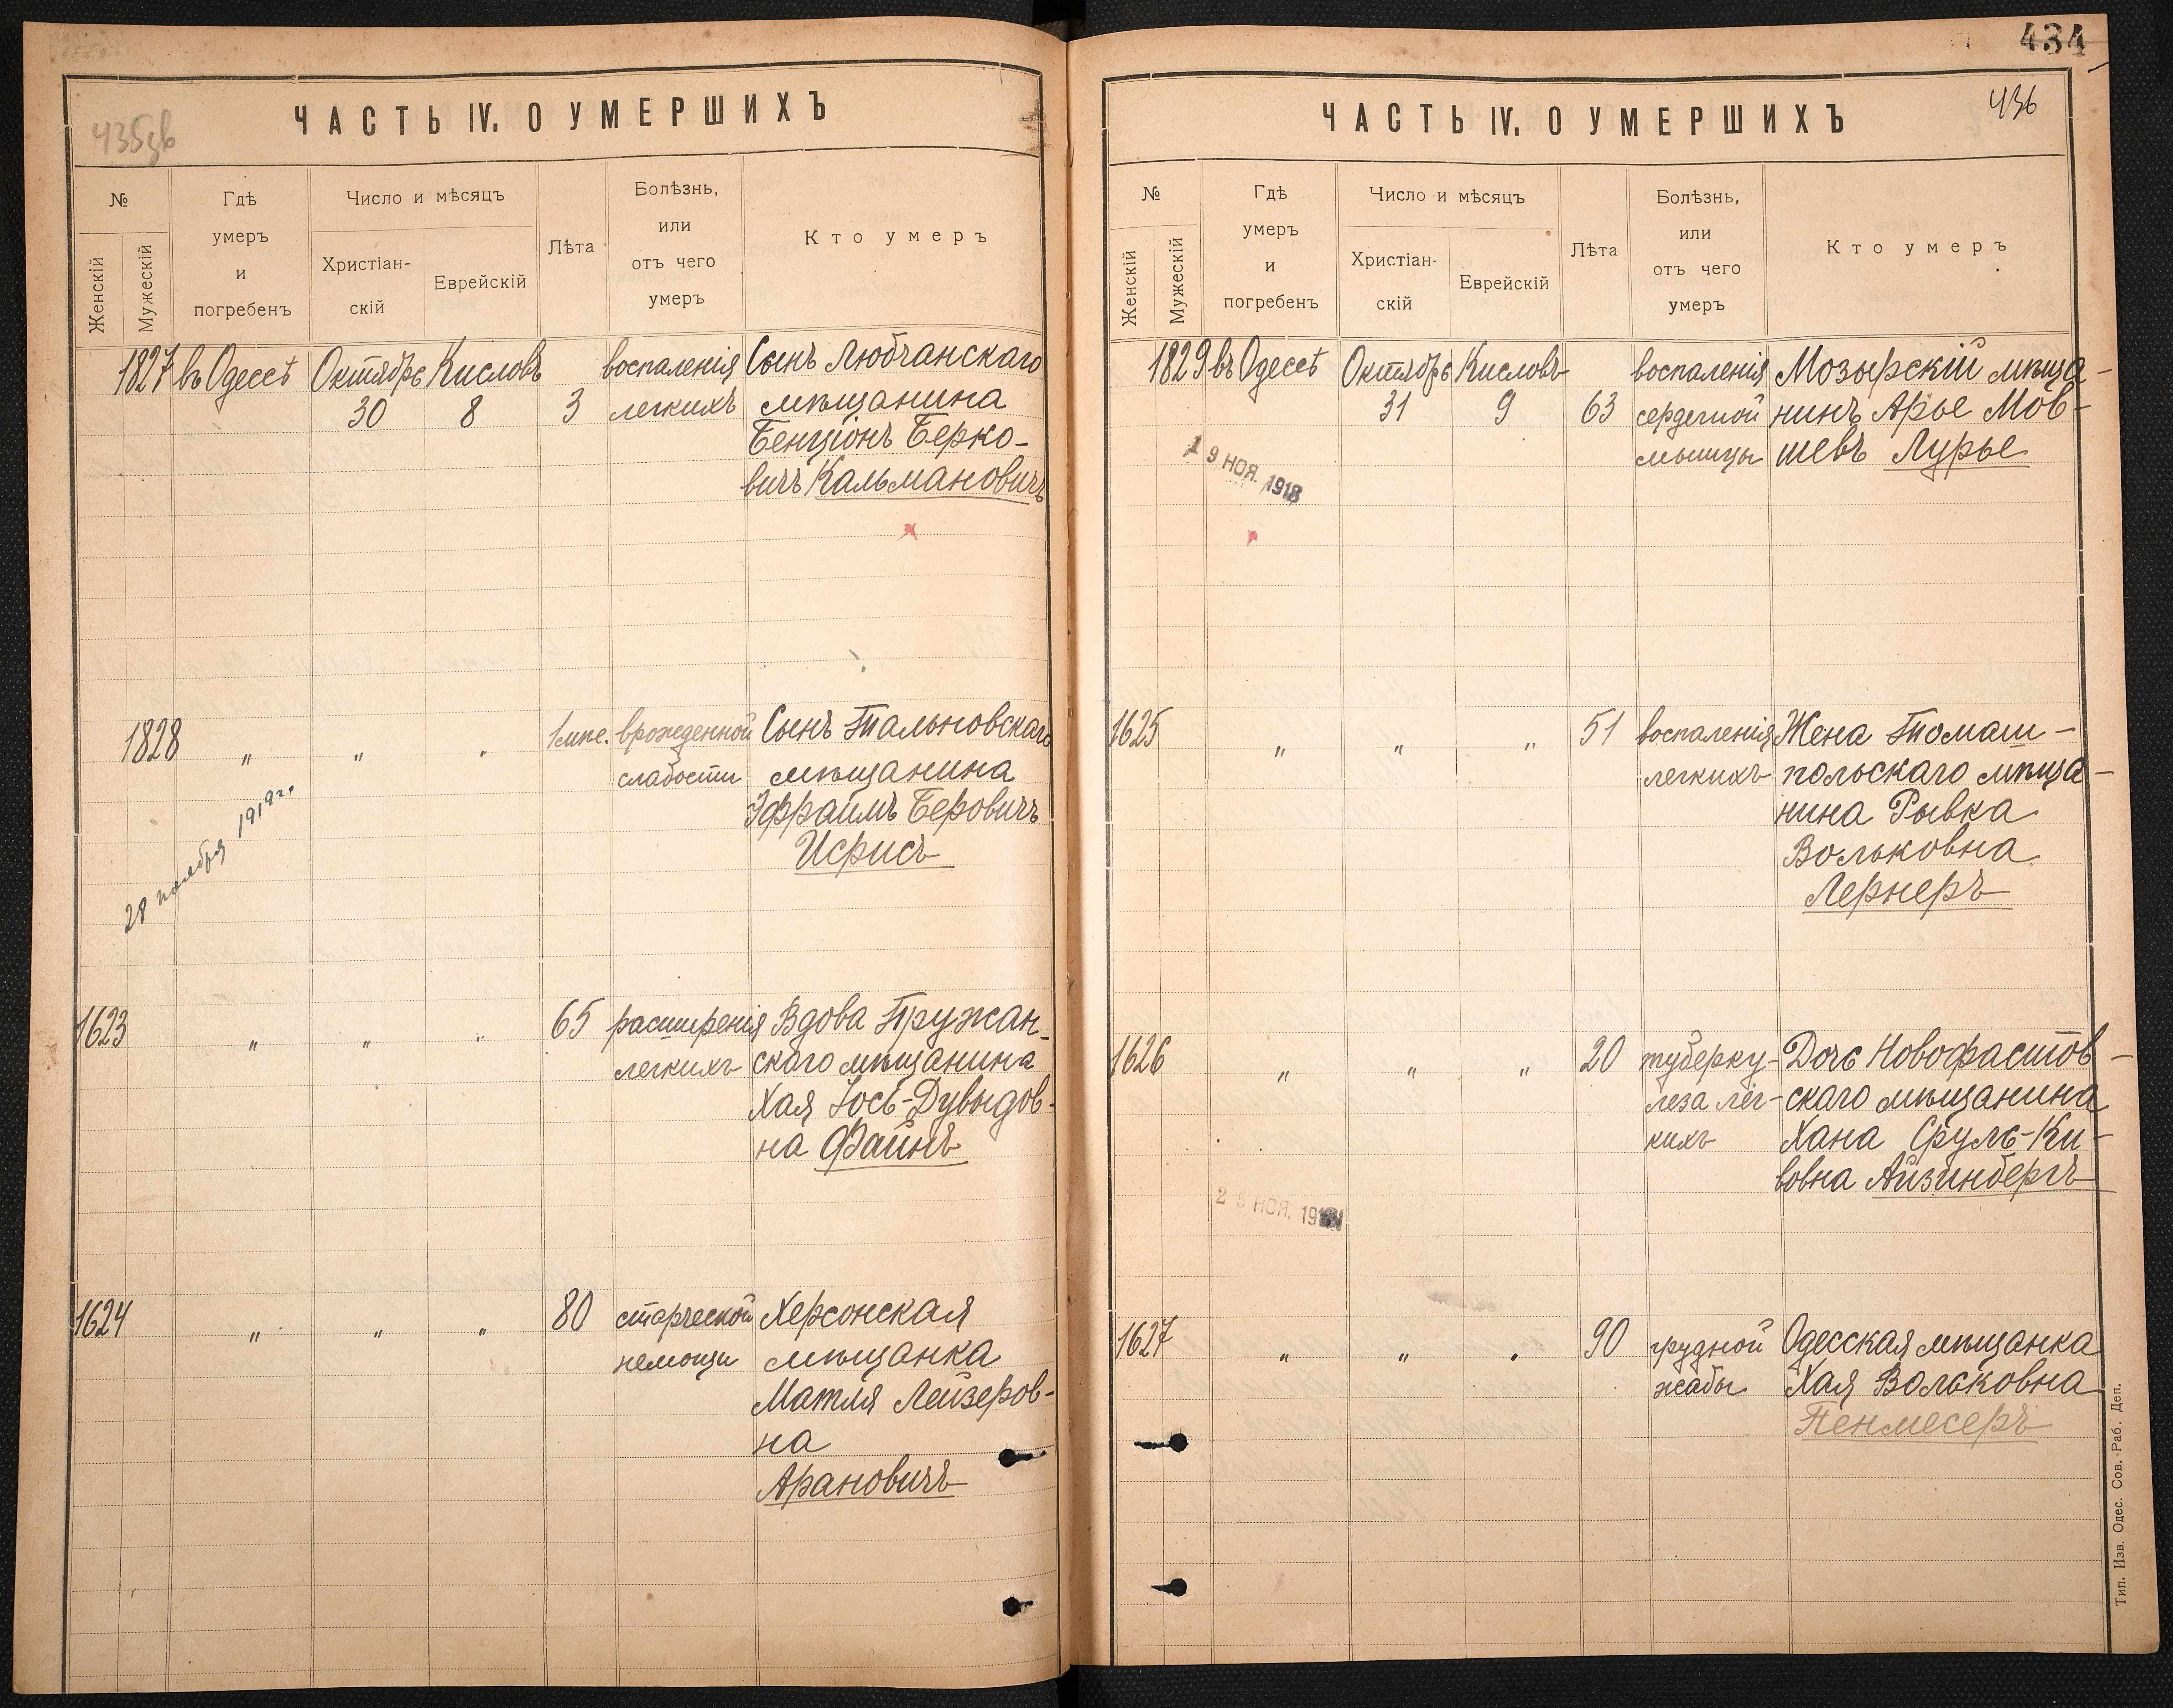 ЧАСТЬ IV. О УМЕРШИХЪ
№
Женскій
Мужескій
Гдѣ
умеръ
и
погребенъ
Число и мѣсяцъ
Христіан-
скій
Еврейскій
Лѣта
Болѣзнь,
или
отъ чего
умеръ
Кто умеръ
1827 въ Одессѣ Октябрь Кисловъ воспаленія Сынъ Любчанскаго
30 8 3 легкихъ мѣщанина
Бенціонъ Берко-
вичъ Кальмановичъ
1828 " " " 1 мѣс. врожденной Сынъ Тальновскаго
слабости мѣщанина
Эфраимъ Беровичъ
Исрисъ
28 ноября 1919 г.
1623 " " " 65 расширенія Вдова Пружан-
легкихъ скаго мѣщанина
Хая Іось-Дувыдов-
на Файнъ
1624 " " " 80 старческой Херсонская
немощи мѣщанка
Матля Лейзеров-
на
Арановичъ
434
436
ЧАСТЬ IV. О УМЕРШИХЪ
№
Женскій
Мужескій
Гдѣ
умеръ
и
погребенъ
Число и мѣсяцъ
Христіан-
скій
Еврейскій
Лѣта
Болѣзнь,
или
отъ чего
умеръ
Кто умеръ
1829 въ Одессѣ Октябрь Кисловъ воспаленія Мозырскій мѣща-
31 9 63 сердечной нинъ Арье Мов-
мышцы шевъ Лурье
19 НОЯ. 1918
1625 " " " 51 воспаленія Жена Томаш-
легкихъ польскаго мѣща-
нина Рывка
Вольковна
Лернеръ
1626 " " " 20 туберку- Дочь Новофастов-
леза лег- скаго мѣщанина
кихъ Хана Сруль-Ки-
вовна Айзинбергъ
НОЯ.
1627 " " " 90 грудной Одесская мѣщанка
жабы Хая Вольковна
Пенмесеръ
Тип. Изв. Одес. Сов. Раб. Деп.